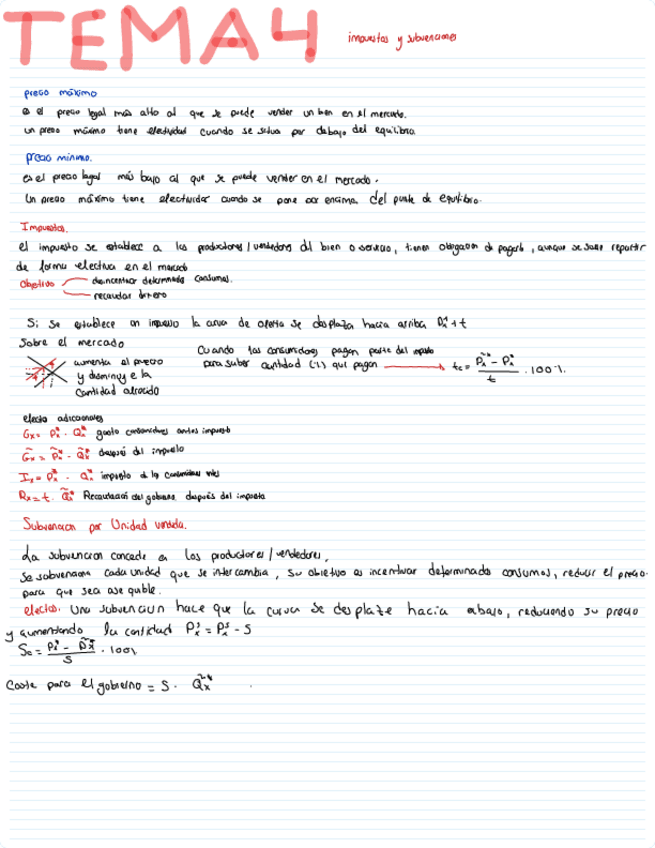 TEMA 4
impuestos y subvenciones
precio máximo
es el precio legal más alto al que se puede vender un bien en el mercado.
un precio máximo tiene efectividad cuando se situa por debajo del equilibrio.
precio minimo.
es el precio legal más bajo al que se puede vender en el mercado.
Un precio máximo tiene efectividad cuando se pone por encima del punto de equilibrio.
Impuestos.
el impuesto se establece a los productores/vendedores del bien o servicio, tienen obligación de pagarlo, aunque se suele repartir
de forma efectiva en el mercado
Objetivo desincentivar determinados consumos.
recaudar dinero
Si se establece un impuesto la curva de oferta se desplaza hacia arriba Pₓˢ + t
Sobre el mercado
aumenta el precio
y disminuye la
cantidad ofrecida
Cuando los consumidores pagan parte del impuesto
para saber cantidad (%) que pagan → tc = (P̃ₓ* - Pₓ*) / t · 100%
efecto adicionales
Gx = Pₓ* · Qₓ* gasto consumidores antes impuesto
G̃x = P̃ₓ* · Q̃ₓ* después del impuesto
Ix = Pₓ* · Qₓ* impuesto
Rx = t · Q̃ₓ* Recaudación del gobierno después del impuesto
Subvencion por Unidad vendida.
La subvencion concede a los productores/vendedores,
Se subvenciona cada unidad que se intercambia, su objetivo es incentivar determinados consumos, reducir el precio
para que sea asequible.
efectos. Una subvencion hace que la curva se desplaze hacia abajo, reduciendo su precio
y aumentando la cantidad Pₓˢ = Pₓˢ - S
Sc = (Pₓ* - P̃ₓ*) / S · 100%
Coste para el gobierno = S · Q̃ₓ*